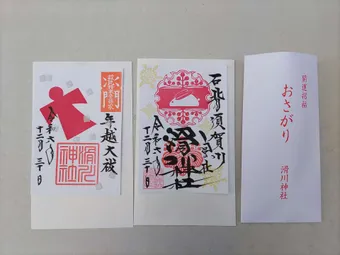 年越大祓
令和六年
十二月三十日
滑川神社
石背須賀川
滑川神社
令和六年
十二月三十日
開運招福
おさがり
滑川神社